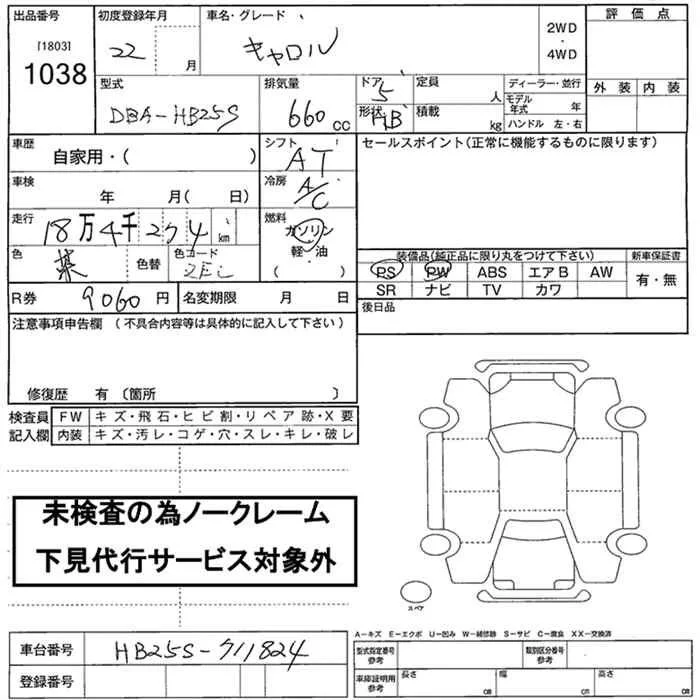 出品番号 初度登録年月 車名・グレード 評価点
[1803] 1038
22 月 キャロル 2WD・4WD
型式 排気量 ドア 定員 ディーラー・並行 外装 内装
DBA-HB25S 660cc 5 人 モデル年式 年
形状 HB 積載 kg ハンドル 左・右
車歴 シフト セールスポイント(正常に機能するものに限ります)
自家用・( ) AT
車検 冷房
年 月( 日) A/C
走行 燃料
18万4千274km ガソリン
軽・油
( )
色 色替 色コード 装備品(純正品に限り丸をつけて下さい) 新車保証書
PS PW ABS エアB AW 有・無
SR ナビ TV カワ
R券 9060円 名変期限 月 日 後日品
注意事項申告欄 (不具合内容等は具体的に記入して下さい)
修復歴 有〔箇所 〕
検査員 FW キズ・飛石・ヒビ割・リペア跡・X要
記入欄 内装 キズ・汚レ・コゲ・穴・スレ・キレ・破レ
未検査の為ノークレーム
下見代行サービス対象外
スペア
A-キズ E-エクボ U-凹み W-補修跡 S-サビ C-腐食 XX-交換済
車台番号 HB25S-711824 型式指定番号 参考 類別区分番号 参考
登録番号 車庫証明用 参考 長さ cm 幅 cm 高さ cm